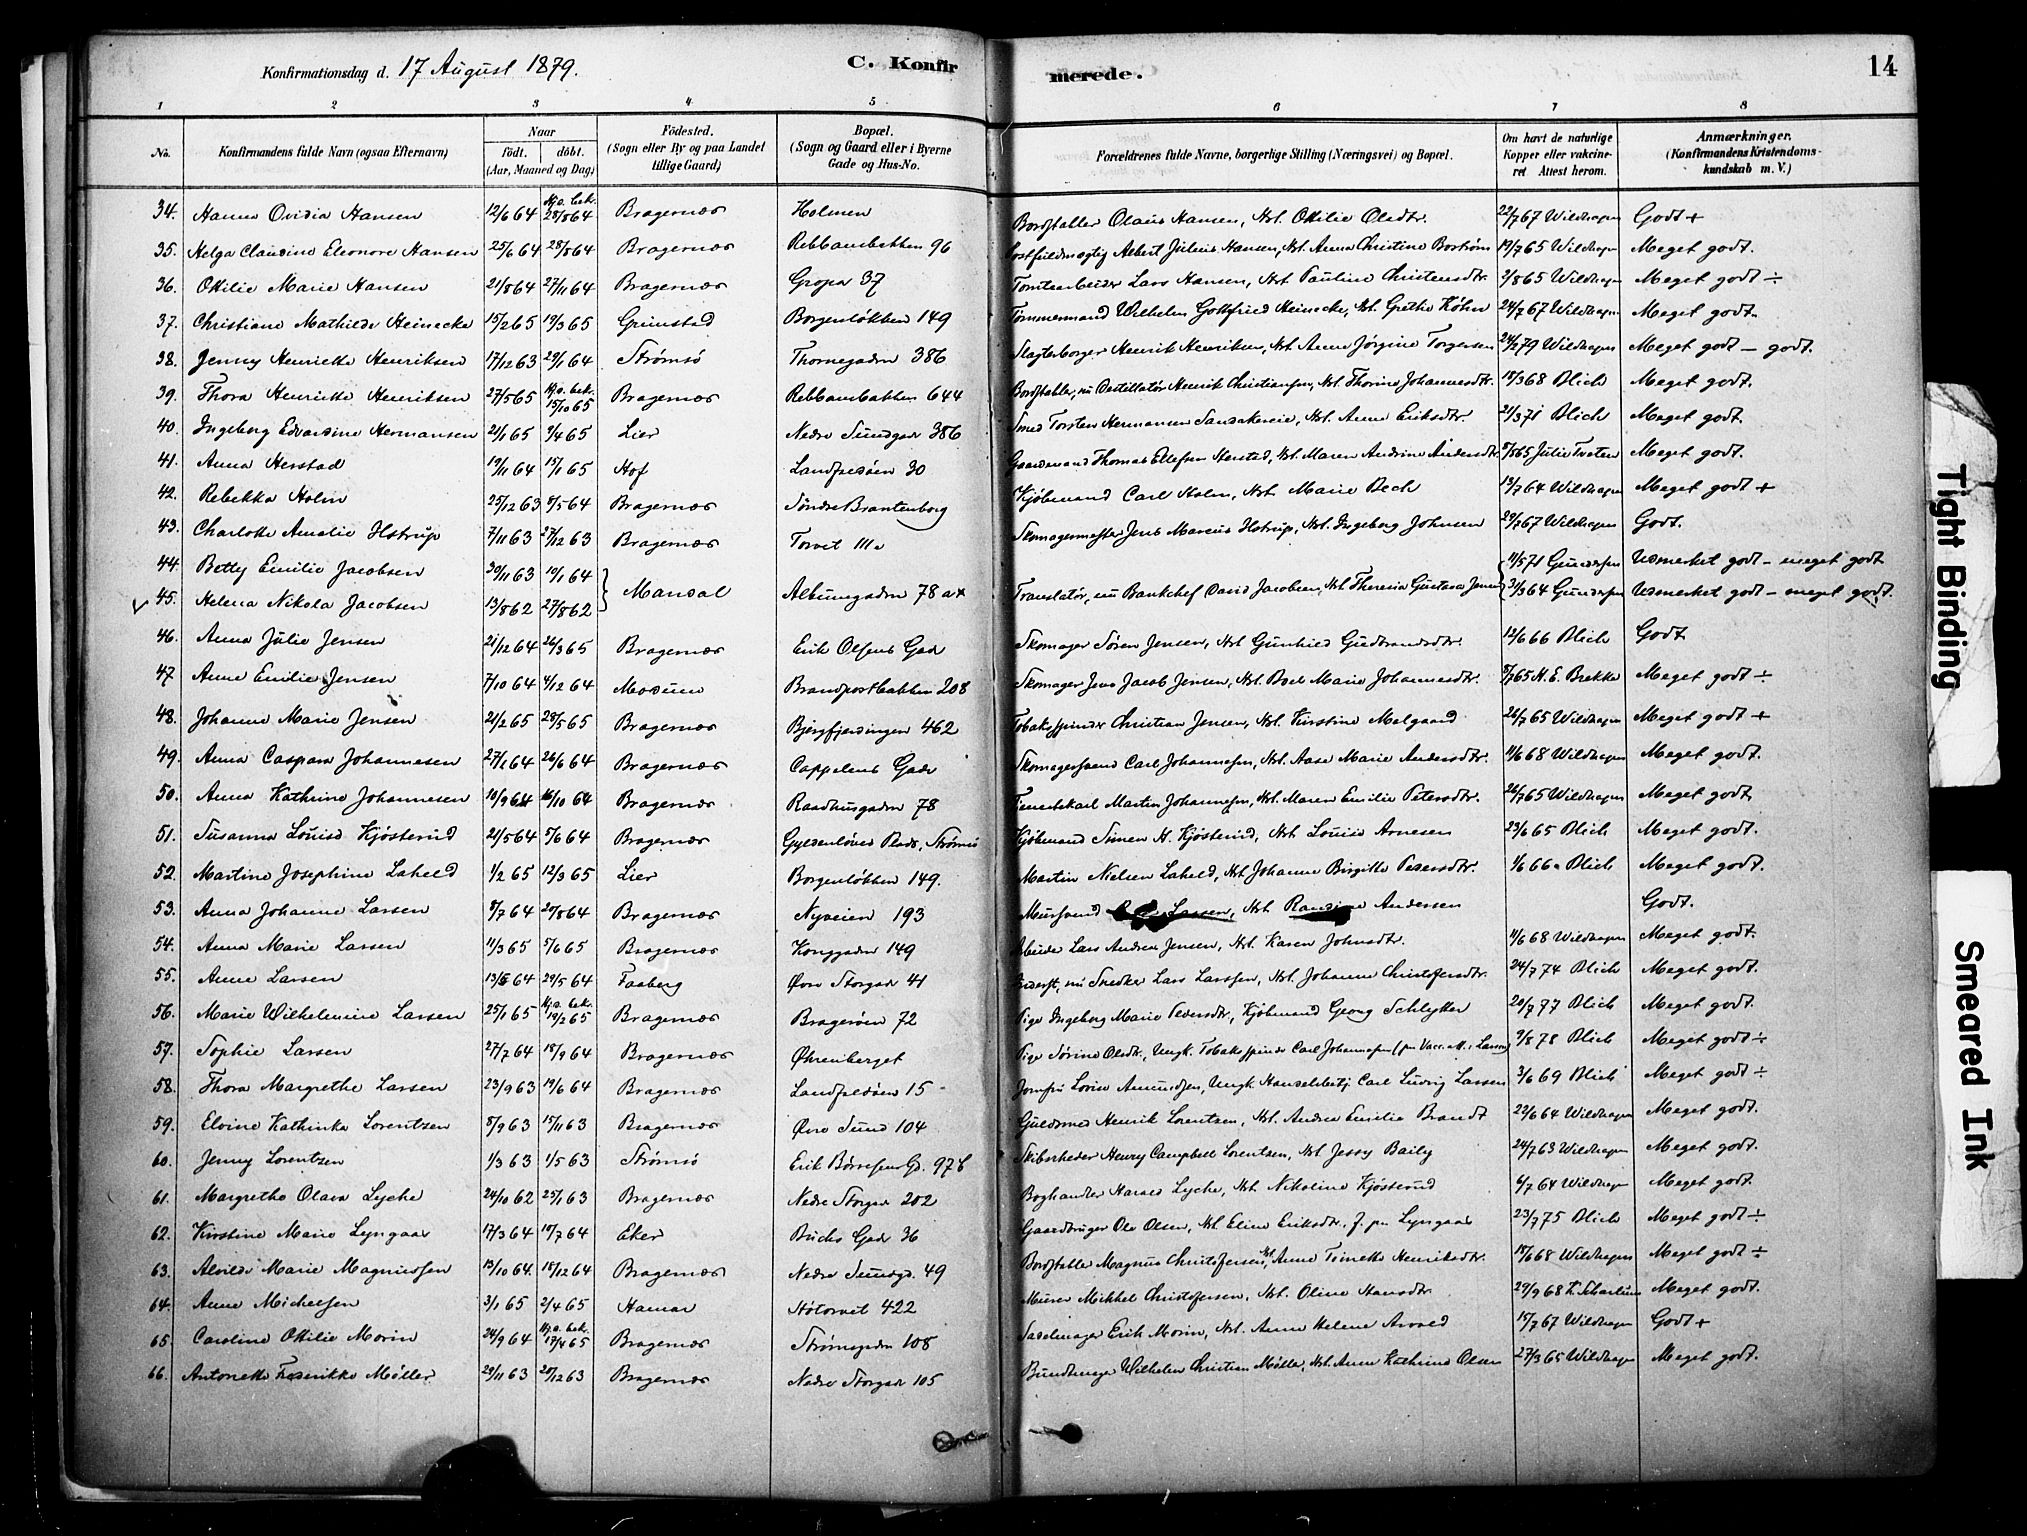 Konfirmationsdag d. 17 August 1879. C. Konfirmerede. 14
1 2 3 4 5 6 7 8
No. Konfirmandens fulde Navn (ogsaa Efternavn) Naar født. døbt. (Aar, Maaned og Dag) Fødested. (Sogn eller By og paa Landet tillige Gaard) Bopæl. (Sogn og Gaard eller i Byerne Gade og Hus-No. Forældrenes fulde Navne, borgerlige Stilling (Næringsvei) og Bopæl. Om havt de naturlige Kopper eller vakcineret Attest herom. Anmærkninger. (Konfirmandens Kristendomskundskab m. V.)
34. Hanna Ovidia Hansen 12/6 64 Hj.d. bek. 28/8 64 Bragernæs Holmen Bordstabler Olaus Hansen, Hst. Ottilie Olsdtr. 22/7 67 Wildhagen Godt +
35. Helga Claudine Eleonore Hansen 25/6 64 28/8 64 Bragernæs Rebbanebakken 96 Postfuldmægtig Albert Julius Hansen, Hst. Anna Christine Boström 19/7 65 Wildhagen Meget godt.
36. Ottilie Marie Hansen 21/8 64 27/11 64 Bragernæs Gropa 37 Tomtearbeider Lars Hansen, Hst. Pauline Christensdtr. 2/8 65 Wildhagen Meget godt ÷
37. Christiane Mathilde Heinecke 15/2 65 19/3 65 Grimstad Borgenløkken 149 Tømmermand Wilhelm Gottfried Heinecke, Hst. Grethe Køhn 24/7 67 Wildhagen Meget godt.
38. Jenny Henriette Henriksen 17/12 63 29/1 64 Strømsø Thornegaden 386 Slagterborger Henrik Henriksen, Hst. Anne Jørgine Torgersen 24/2 79 Wildhagen Meget godt – godt.
39. Thora Henriette Henriksen 27/5 65 Hj.d. bek. 15/10 65 Bragernæs Rebbanebakken 644 Bordstabler, nu Destillatør Henrik Christiansen, Hst. Thorine Johannesdtr. 18/3 68 Blich Meget godt.
40. Ingeborg Edvardine Hermansen 21/1 65 9/4 65 Lier Nedre Sundgade 386 Smed Torsten Hermansen Sandakereie, Hst. Anne Eriksdtr. 21/3 71 Blich Meget godt.
41. Anna Herstad 19/11 64 15/1 65 Hof Landfaldøen 30 Gaardmand Thomas Ellefsen Herstad, Hst. Maren Andrine Andersdtr. 8/5 65 Julie Tveten Meget godt.
42. Rebekka Holm 25/12 63 8/5 64 Bragernæs Søndre Brantenborg Kjøbmand Carl Holm, Hst. Marie Bech 13/7 64 Wildhagen Meget godt +
43. Charlotte Amalie Hstrup 7/11 63 27/12 63 Bragernæs Torvet 111a Skomagermester Jens Marcus Hstrup, Hst. Ingeborg Johnsen 29/7 67 Wildhagen Godt.
44. Betty Emilie Jacobsen 30/11 63 19/1 64 Mandal Albumsgaden 78 a+ Translatør, nu Bankchef David Jacobsen, Hst. Theresia Gustava Jensen 11/5 71 Gundersen Udmerket godt – meget godt
45. Helena Nikola Jacobsen 13/8 62 27/8 62 31/3 64 Gundersen Udmerket godt – meget godt.
46. Anna Julie Jensen 21/12 64 26/3 65 Bragernæs Erik Olsens Gade Skomager Søren Jensen, Hst. Gunhild Gudbrandsdtr. 12/6 66 Blich Godt
47. Anne Emilie Jensen 7/10 64 4/12 64 Modum Brandpostbakken 208 Skomager Jens Jacob Jensen, Hst. Boel Marie Johannesdtr. 8/7 65 H. E. Brekke Meget godt ÷
48. Johanne Marie Jensen 21/2 65 28/5 65 Bragernæs Bjergfjerdingen 462 Tobaksspinder Christian Jensen, Hst. Kirstine Melgaard 26/7 65 Wildhagen Meget godt +
49. Anna Caspara Johannesen 27/1 64 26/6 64 Bragernæs Cappelens Gade Skomagersvend Carl Johannesen, Hst. Aase Marie Andersdtr. 11/6 68 Wildhagen Meget godt.
50. Anna Kathrine Johannesen 10/9 64 16/10 64 Bragernæs Raadhusgaden 78 Tjenestekarl Martin Johannesen, Hst. Maren Emilie Petersdtr. 26/7 65 Wildhagen Meget godt.
51. Susanna Louise Kjøsterud 21/5 64 5/6 64 Bragernæs Gyldenløves Plads, Strømsø Kjøbmand Simen H. Kjøsterud, Hst. Louise Arnesen 23/6 65 Blich Meget godt.
52. Martine Josephine Lakeld 1/2 65 12/3 65 Lier Borgenløkken 149. Martin Nielsen Lakeld, Hst. Johanne Birgitte Pedersdtr. 1/6 66 Blich Meget godt.
53. Anna Johanne Larsen 8/7 64 20/8 64 Bragernæs Nyveien 193 Mursvend Larsen, Hst. Randine Andersen Godt.
54. Anna Marie Larsen 11/3 65 5/6 65 Bragernæs Konggaden 149 Arbeider Lars Andreas Jensen, Hst. Karen Johnsdtr. 11/6 68 Wildhagen Meget godt.
55. Anne Larsen 13/5 64 29/5 64 Faaberg Øvre Storgade 41 Inderst, nu Snedker Lars Larssen, Hst. Johanne Christofersdtr. 24/7 74 Blich Meget godt.
56. Marie Wilhelmine Larsen 25/1 65 Hj.d. bek. 19/2 65 Bragernæs Bragerøen 72 Pige Ingeborg Marie Pedersdtr., Kjøbmand Georg Schlytter 20/7 77 Blich Meget godt.
57. Sophie Larsen 27/7 64 18/9 64 Bragernæs Øhrenberget Pige Sørine Olsdtr., Ungk. Tobaksspinder Carl Johannesen (paa Vacc. A.: Larsen) 9/8 78 Blich Meget godt ÷
58. Thora Margrethe Larsen 23/9 63 19/6 64 Bragernæs Landfaldøen 15 Jomfru Lovise Amundsen, Ungk. Handelsbetj. Carl Ludvig Larsen 3/6 69 Blich Meget godt ÷
59. Elvine Kathinka Lorentzen 8/9 63 15/11 63 Bragernæs Øvre Sund 104 Guldsmed Henrik Lorentzen, Hst. Andrea Emilie Brandt 22/6 64 Wildhagen Meget godt.
60. Jenny Lorentzen 1/3 63 1/5 63 Strømsø Erik Børresens Gd. 97 b Skibsrheder Henry Campbell Lorentzen, Hst. Jessy Baily 24/7 63 Wildhagen Meget godt.
61. Margrethe Olava Lyche 24/10 62 25/1 63 Bragernæs Nedre Storgade 202 Boghandler Harald Lyche, Hst. Nikoline Kjøsterud 6/7 64 Wildhagen Meget godt.
62. Kirstine Marie Lyngaas 17/3 64 10/7 64 Eker Buchs Gade 36 Gaardbruger Ole Olsen, Hst. Eline Eriksdtr. f. paa Lyngaas 23/7 75 Blich Meget godt ÷
63. Alvilde Marie Magnussen 13/10 64. 18/12 64 Bragernæs Nedre Sundgd. 49 Bordstabler Magnus Christofersen, Hst. Anne Timette Henriksdtr. 18/6 68 Wildhagen Meget godt ÷
64. Anne Michelsen 3/1 65 2/4 65 Hamar Høtorvet 422 Murer Mikkel Christofersen, Hst. Oline Hansdtr. 29/9 68 Meget godt.
65. Caroline Ottilie Morin 24/9 64 Hj.d. bek. 17/4 65 Bragernæs Strømsgaden 108 Sadelmager Erik Morin, Hst. Anne Helene Arveed 15/7 67 Wildhagen Godt +
66. Antonette Frederikke Møller 29/11 63 20/12 63 Bragernæs Nedre Storgade 105 Bundtmager Wilhelm Christian Møller, Hst. Anne Kathrine Olsen 27/3 65 Wildhagen Meget godt.
Tight Binding
Smeared Ink